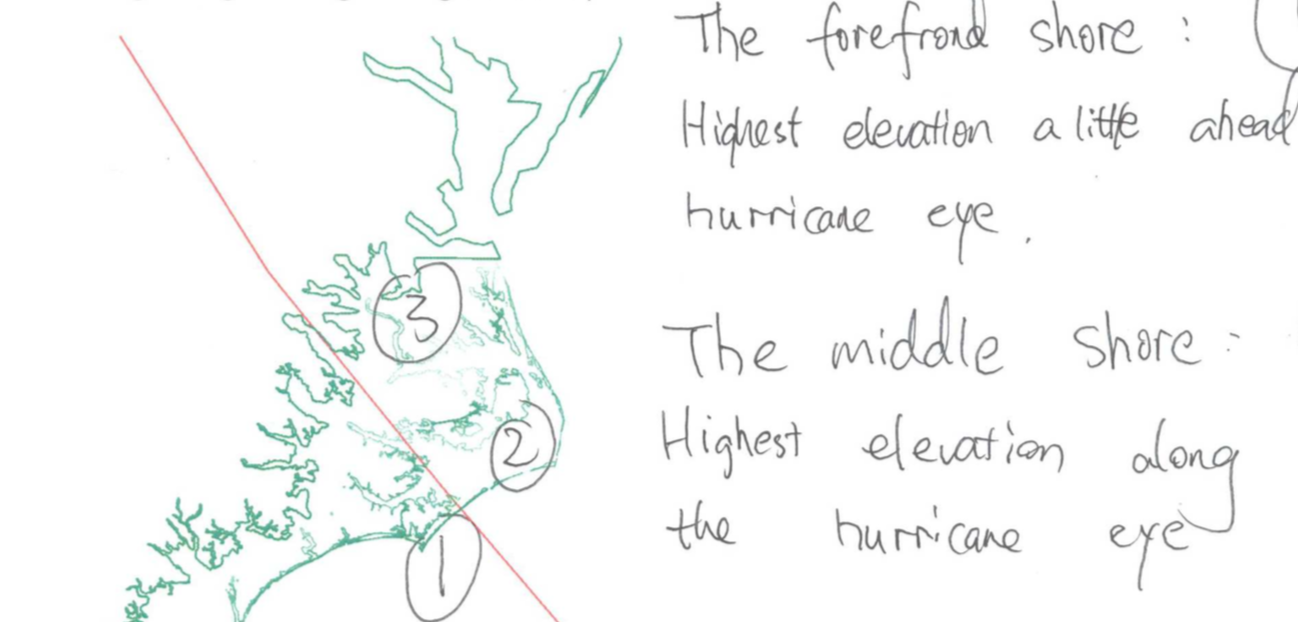 The forefrond shore :
Highest elevation a little ahead
hurricane eye .
The middle shore :
Highest elevation along
the hurricane eye
3
2
1